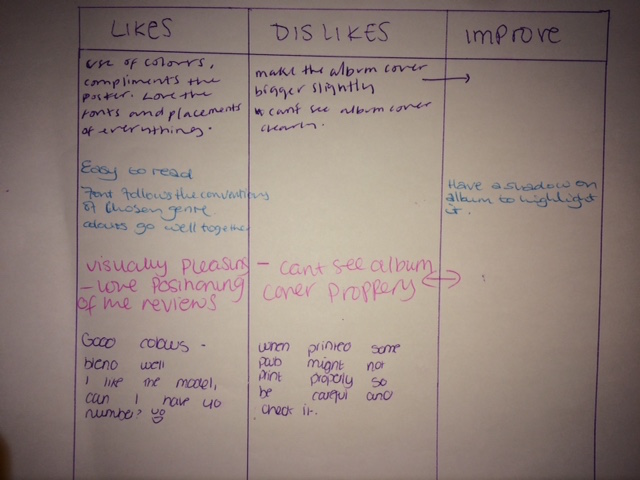 LIKES
DISLIKES
IMPROVE
use of colours,
compliments the
poster. Love the
fonts and placements
of everything.
make the album cover
bigger slightly
cant see album cover
clearly.
Easy to read
Font follows the conventions
of chosen genre
colours go well together
Have a shadow on
album to highlight
it.
visually pleasing
- love positioning
of the reviews
- cant see album
cover proppery
Good colours -
blend well
I like the model,
can I have yo
number?
when printed some
parts might not
print properly so
be careful and
check it.